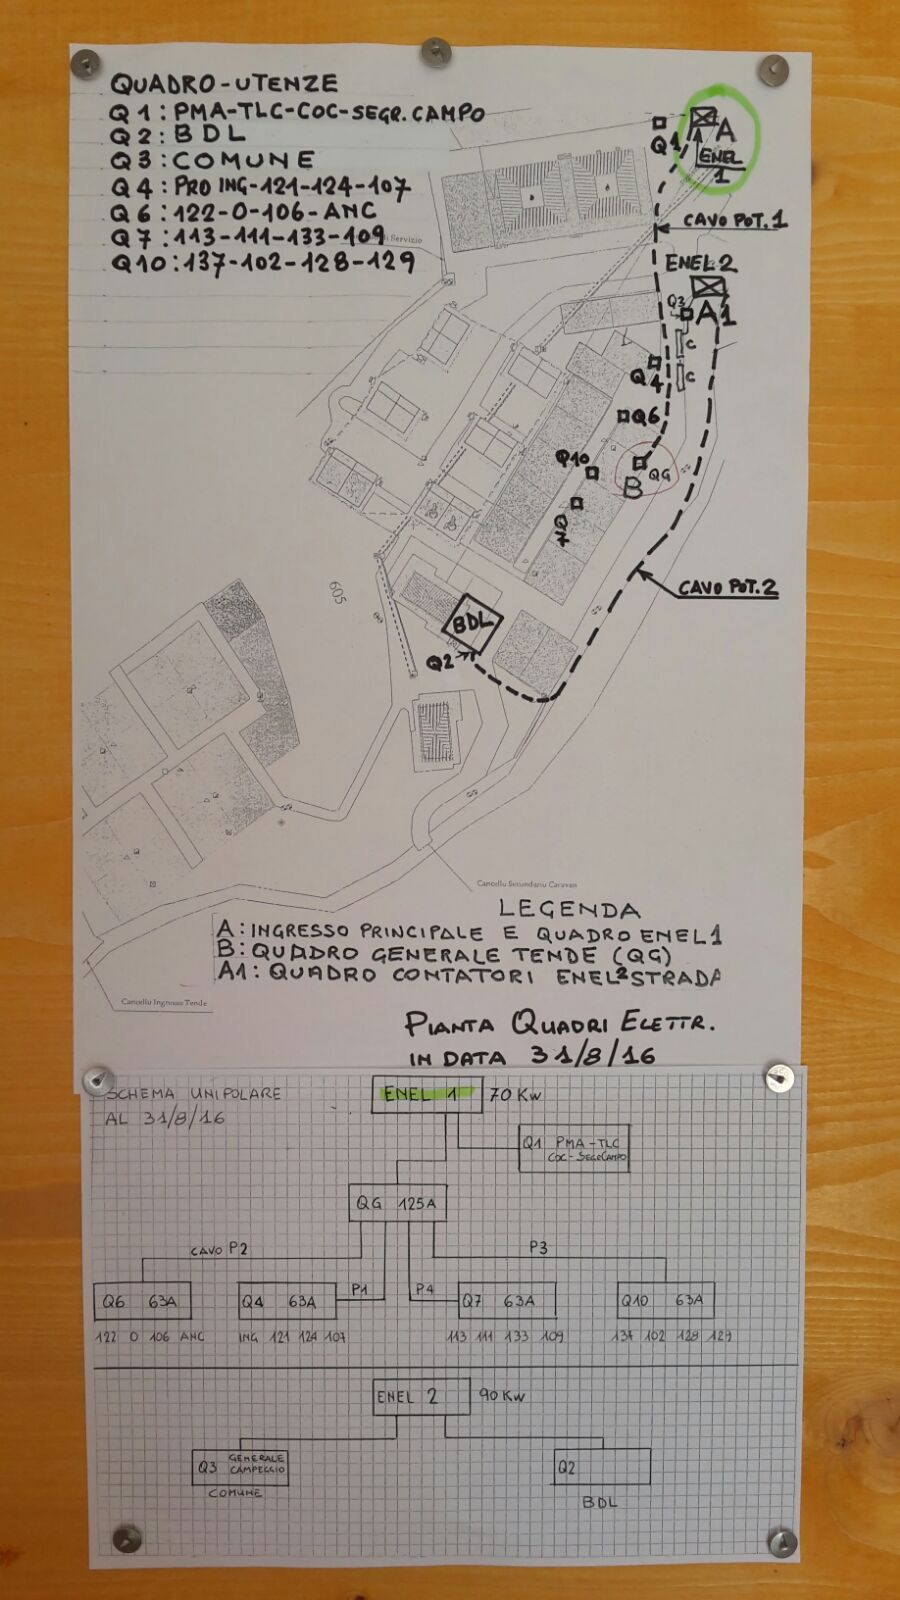 QUADRO-UTENZE
Q1: PMA-TLC-COC-SEGR. CAMPO
Q2: BDL
Q3: COMUNE
Q4: PRO ING-121-124-107
Q6: 122-0-106-ANC
Q7: 113-111-133-109
Q10: 137-102-128-129
Servizio
Q1
A
ENEL
1
CAVO POT. 1
ENEL 2
Q3
A1
C
C
Q4
Q6
Q10
QG
B
Q7
605
CAVO POT. 2
BDL
Q2
Cancello Secondario Caravan
LEGENDA
A: INGRESSO PRINCIPALE E QUADRO ENEL 1
B: QUADRO GENERALE TENDE (QG)
A1: QUADRO CONTATORI ENEL 2 STRADA
Cancello Ingresso Tende
PIANTA QUADRI ELETTR.
IN DATA 31/8/16
SCHEMA UNIPOLARE
AL 31/8/16
ENEL 1 70 Kw
Q1 PMA-TLC
COC-SEGR CAMPO
QG 125A
CAVO P2
P3
P1
P4
Q6 63A
Q4 63A
Q7 63A
Q10 63A
122 0 106 ANC
ING 121 124 107
113 111 133 109
137 102 128 129
ENEL 2 90 Kw
Q3 GENERALE
CAMPEGGIO
COMUNE
Q2
BDL